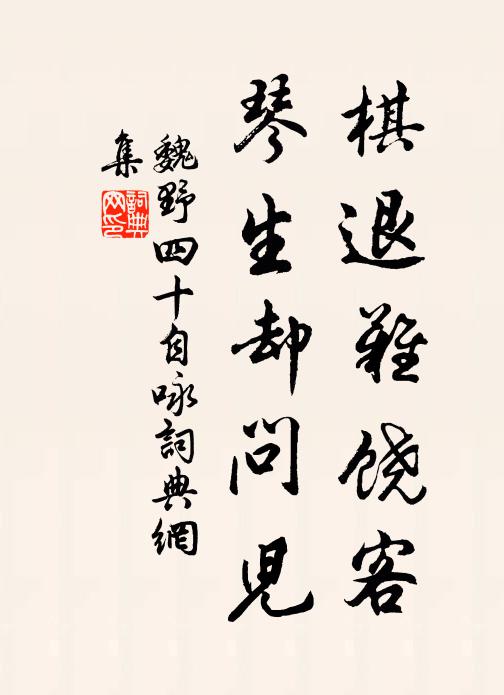 棋退難饒客
琴生却問兒
魏野四十自咏詞典網
集
詞典
网印